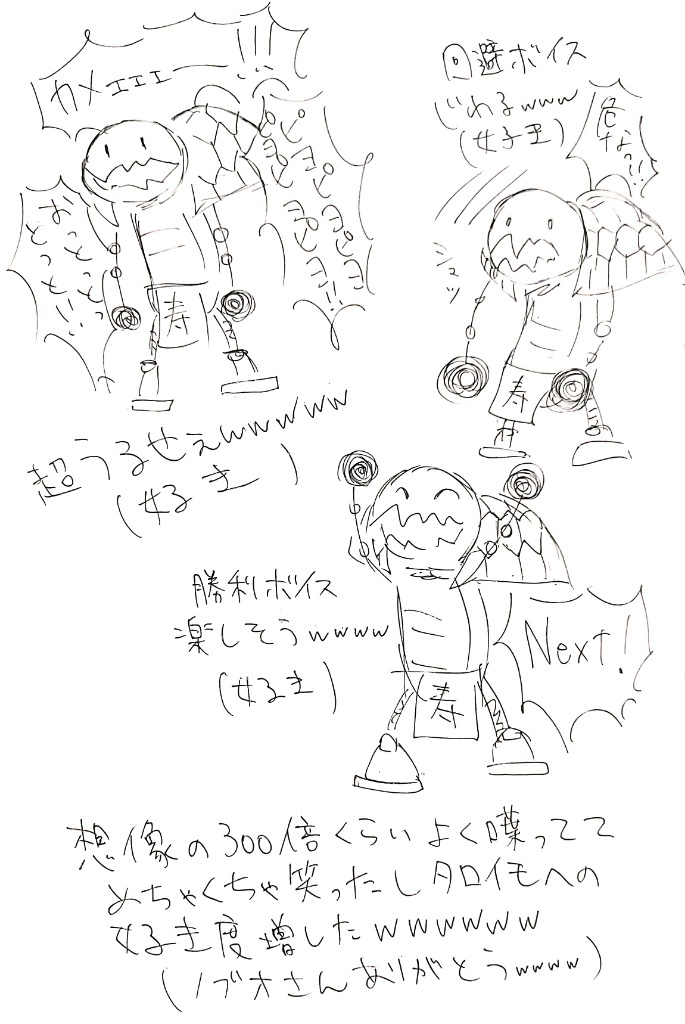 カメェェェー!!!
おっとっとっと!!
ピヨピヨピヨピヨピヨ!!
寿
超うるせぇwwwww
(好き)
回避ボイス
じわるwww
(好き)
危なっ!!
シュッ
寿
勝利ボイス
楽しそうwwww
(好き)
Next!
寿
想像の300倍くらいよく喋ってて
めちゃくちゃ笑ったしタロイモへの
好き度増したwwwwww
(ノブオさんありがとうwwww)